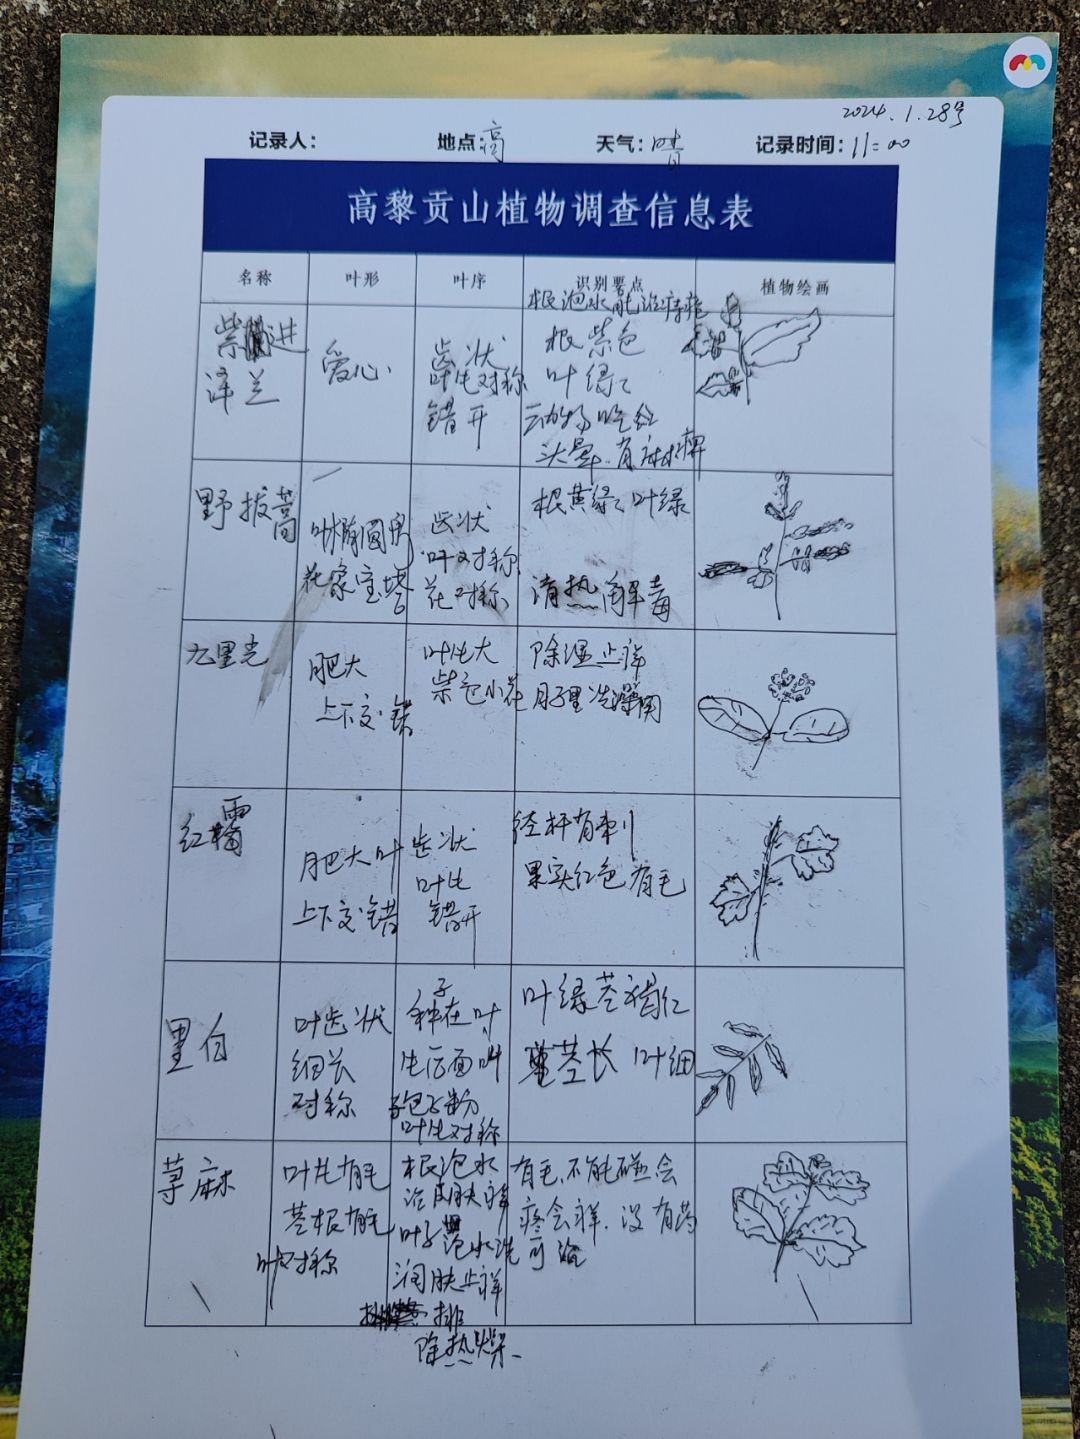 2024.1.28号
记录人: 地点:高 天气:晴 记录时间:11:00
高黎贡山植物调查信息表
名称 叶形 叶序 识别要点 植物绘画
紫 进
泽兰
爱心
齿状
叶片对称
错开
根泡水能治痔疮
根紫色
叶绿色
动物吃红
头晕.有麻痹
野拔蒿
叶椭圆形
花象宝塔
齿状
叶对称
花对称
根黄绿色叶绿
清热解毒
九里光
肥大
上下交错
叶片大
紫色小花
除湿止痒
月子里洗澡用
红霉
肥大叶
上下交错
齿状
叶片
错开
径杆有刺
果实红色有毛
里白
叶齿状
细长
对称
子
种在叶
片后面叫
孢子粉
叶片对称
叶绿茎褐红
茎长叶细
荨麻
叶片有毛
茎根有毛
叶对称
根泡水
治皮肤痒
叶子泡水洗
润肤止痒
排
除热燥
有毛.不能碰会
疼会痒.没有药
可治